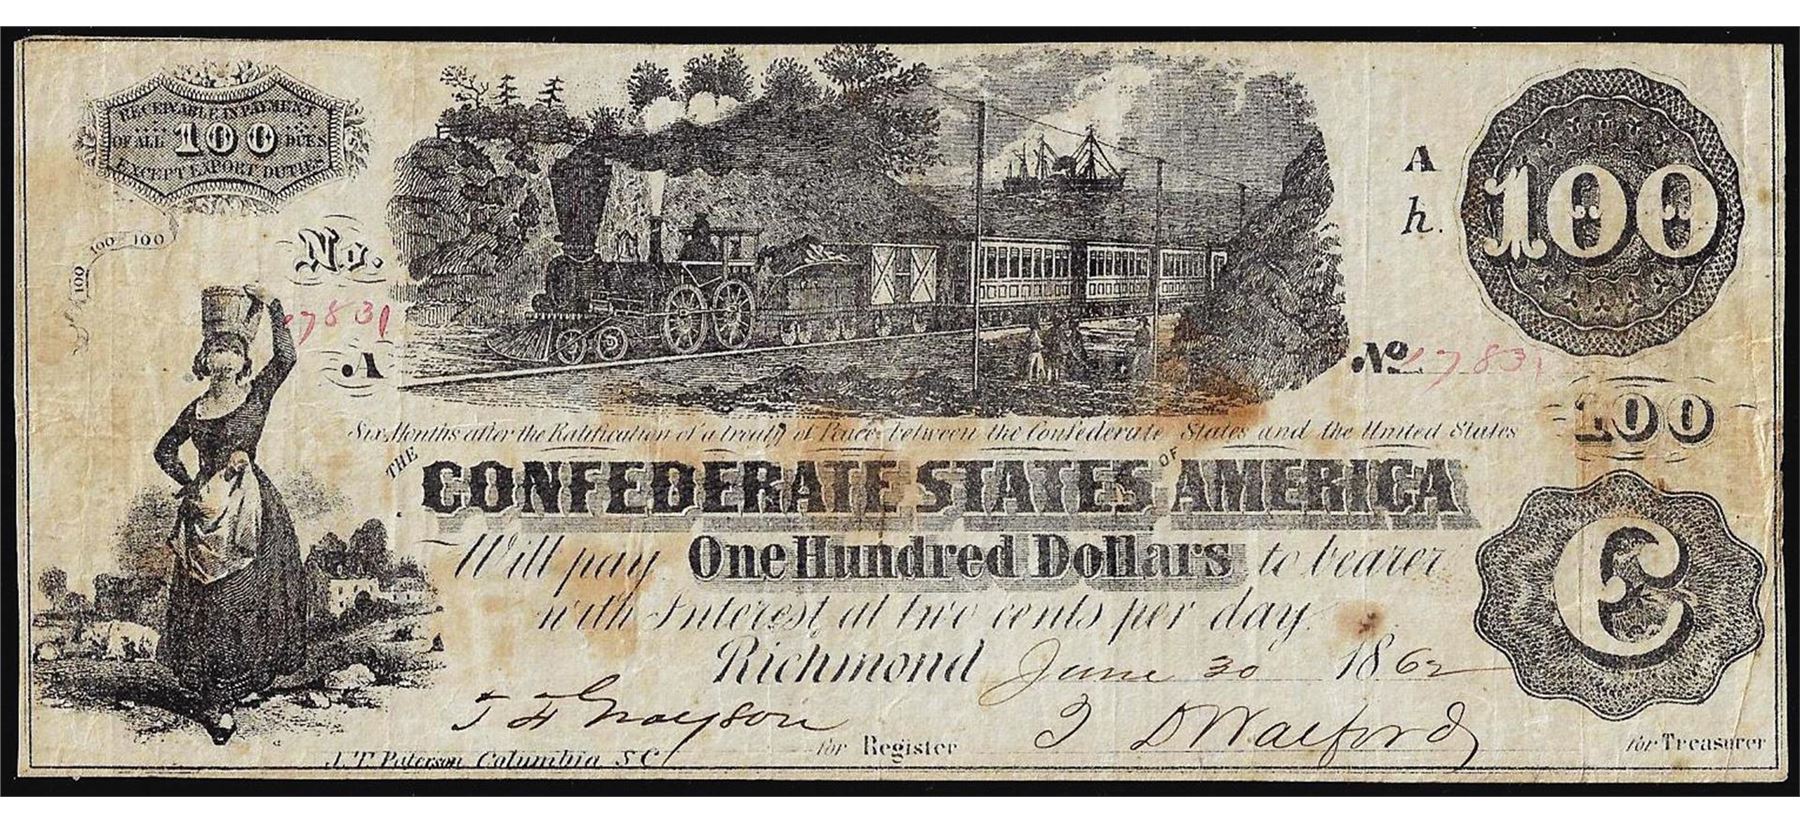 RECEIVABLE IN PAYMENT
OF ALL 100 DUES
EXCEPT EXPORT DUTIES
100 100 100
No.
7831
A
A
h.
100
No 7831
100
Six Months after the Ratification of a treaty of Peace between the Confederate States and the United States
THE CONFEDERATE STATES OF AMERICA
Will pay One Hundred Dollars to bearer
with Interest at two cents per day.
Richmond June 30 1862
C
for Register
for Treasurer
J. T. Paterson Columbia S C